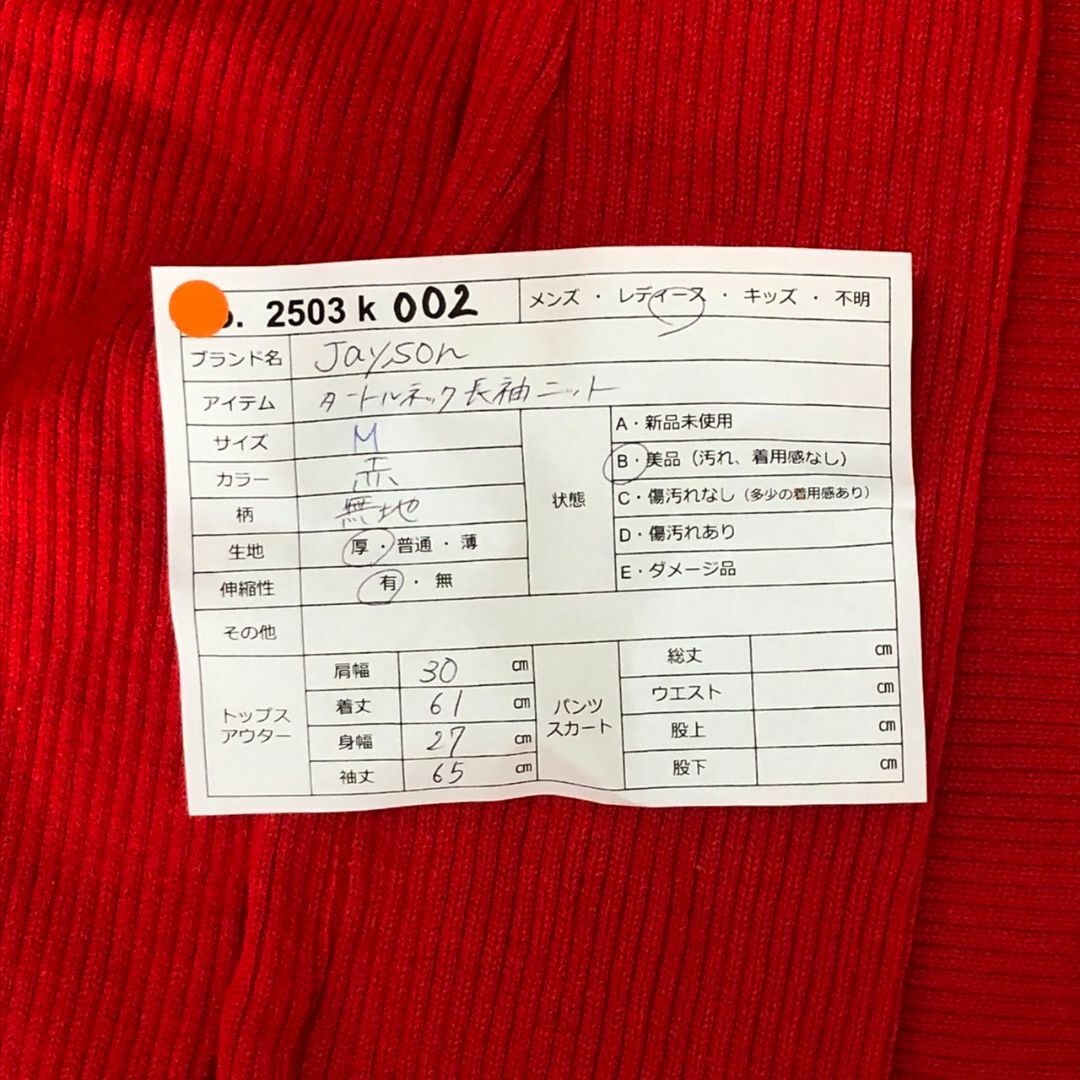 . 2503 k 002 メンズ ・ レディース ・ キッズ ・ 不明
ブランド名 Jayson
アイテム タートルネック長袖ニット
サイズ M
カラー 赤
柄 無地
生地 厚・普通・薄
伸縮性 有・無
状態
A・新品未使用
B・美品（汚れ、着用感なし）
C・傷汚れなし（多少の着用感あり）
D・傷汚れあり
E・ダメージ品
その他
トップス
アウター
肩幅 30 ㎝
着丈 61 ㎝
身幅 27 ㎝
袖丈 65 ㎝
パンツ
スカート
総丈 ㎝
ウエスト ㎝
股上 ㎝
股下 ㎝